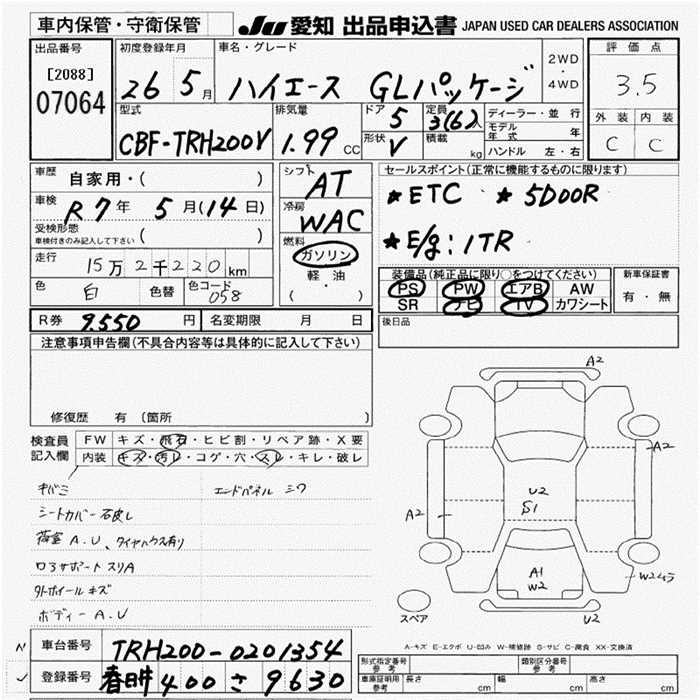 車内保管・守衛保管
JU 愛知 出品申込書 JAPAN USED CAR DEALERS ASSOCIATION
出品番号
[2088]
07064
初度登録年月
26 5月
車名・グレード
ハイエース GLパッケージ
2WD
・
4WD
評価点
3.5
外装 内装
C C
型式
CBF-TRH200V
排気量
1.99 CC
ドア 5
形状 V
定員 3(6)人
積載 kg
ディーラー・並行
モデル年式 年
ハンドル 左・右
車歴 自家用・( )
車検 R7年 5月(14日)
受検形態 ( )
車検付きのみ記入して下さい
走行 15万2千220km
色 白 色替 色コード 058
シフト AT
冷房 WAC
燃料 ガソリン
軽・油
( )
セールスポイント(正常に機能するものに限ります)
★ETC ★5DOOR
★E/g:1TR
装備品(純正品に限り○をつけてください)
PS PW エアB AW
SR ナビ TV カワシート
新車保証書
有・無
後日品
R券 9.550円 名変期限 月 日
注意事項申告欄(不具合内容等は具体的に記入して下さい)
修復歴 有(箇所 )
検査員記入欄
FW キズ・飛石・ヒビ割・リペア跡・X要
内装 キズ・汚レ・コゲ・穴・スレ・キレ・破レ
キバミ エンドパネル シワ
シートカバー
荷室 A.U、タイヤハウス有り
ロアサポート スリA
外ホイール キズ
ボディー A.U
A2
A2
A2
U2
S1
A1
W2
W2ムラ
U2
スペア
A-キズ E-エクボ U-凹み W-補修跡 S-サビ C-腐食 XX-交換済
車台番号 TRH200-0201354
登録番号 春日井 400 さ 9630
型式指定番号
参考
類別区分番号
参考
車庫証明用
参考
長さ cm 幅 cm 高さ cm